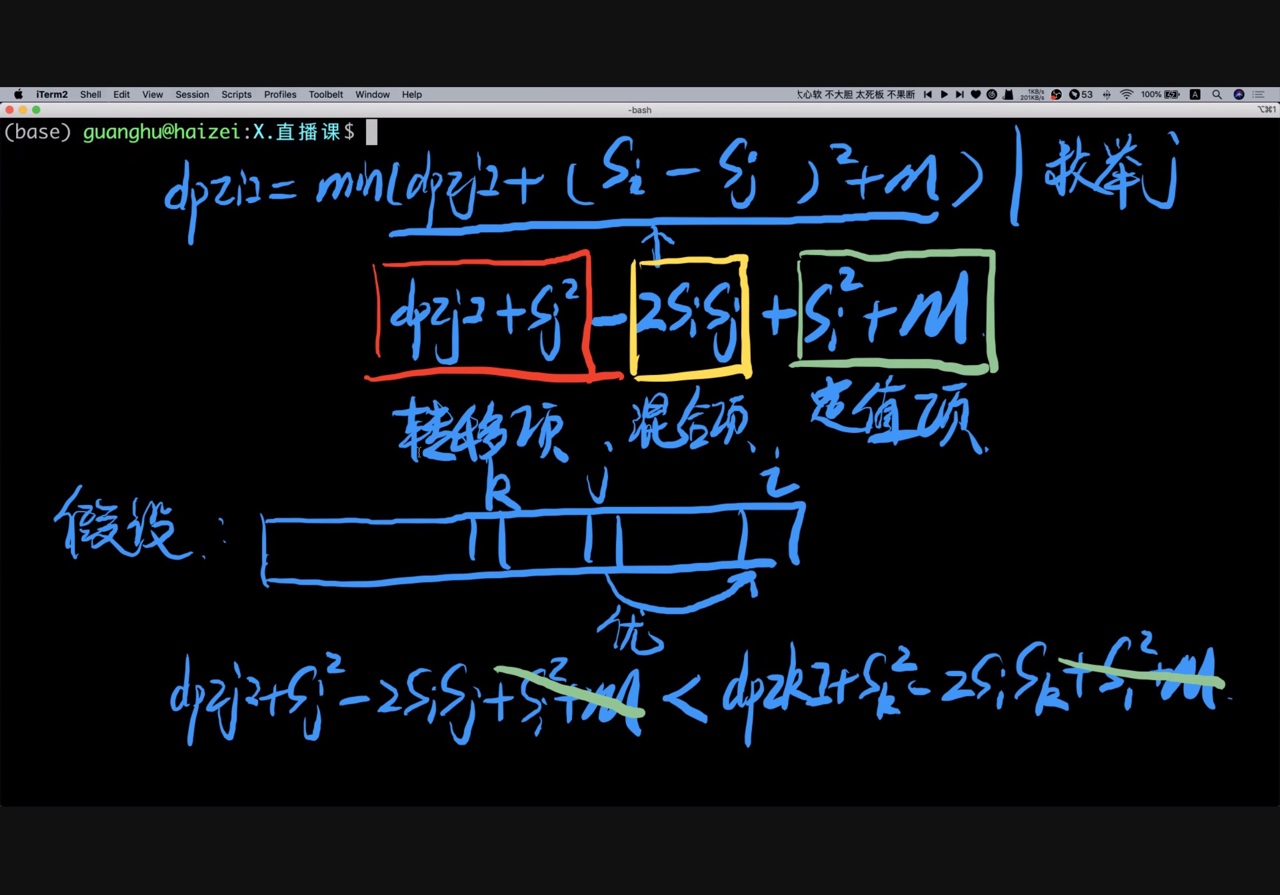 iTerm2 Shell Edit View Session Scripts Profiles Toolbelt Window Help 心软 不大胆 太死板 不果断 1KB/s 201KB/s 53 100% A
-bash ⌥⌘1
(base) guanghu@haizei:X.直播课$
dp[i] = min(dp[j] + (Si - Sj)² + M) | 枚举j
dp[j] + Sj² - 2SiSj + Si² + M
转移项、混合项、定值项.
k j i
假设:
优
dp[j] + Sj² - 2SiSj + Si² + M < dp[k] + Sk² - 2SiSk + Si² + M.